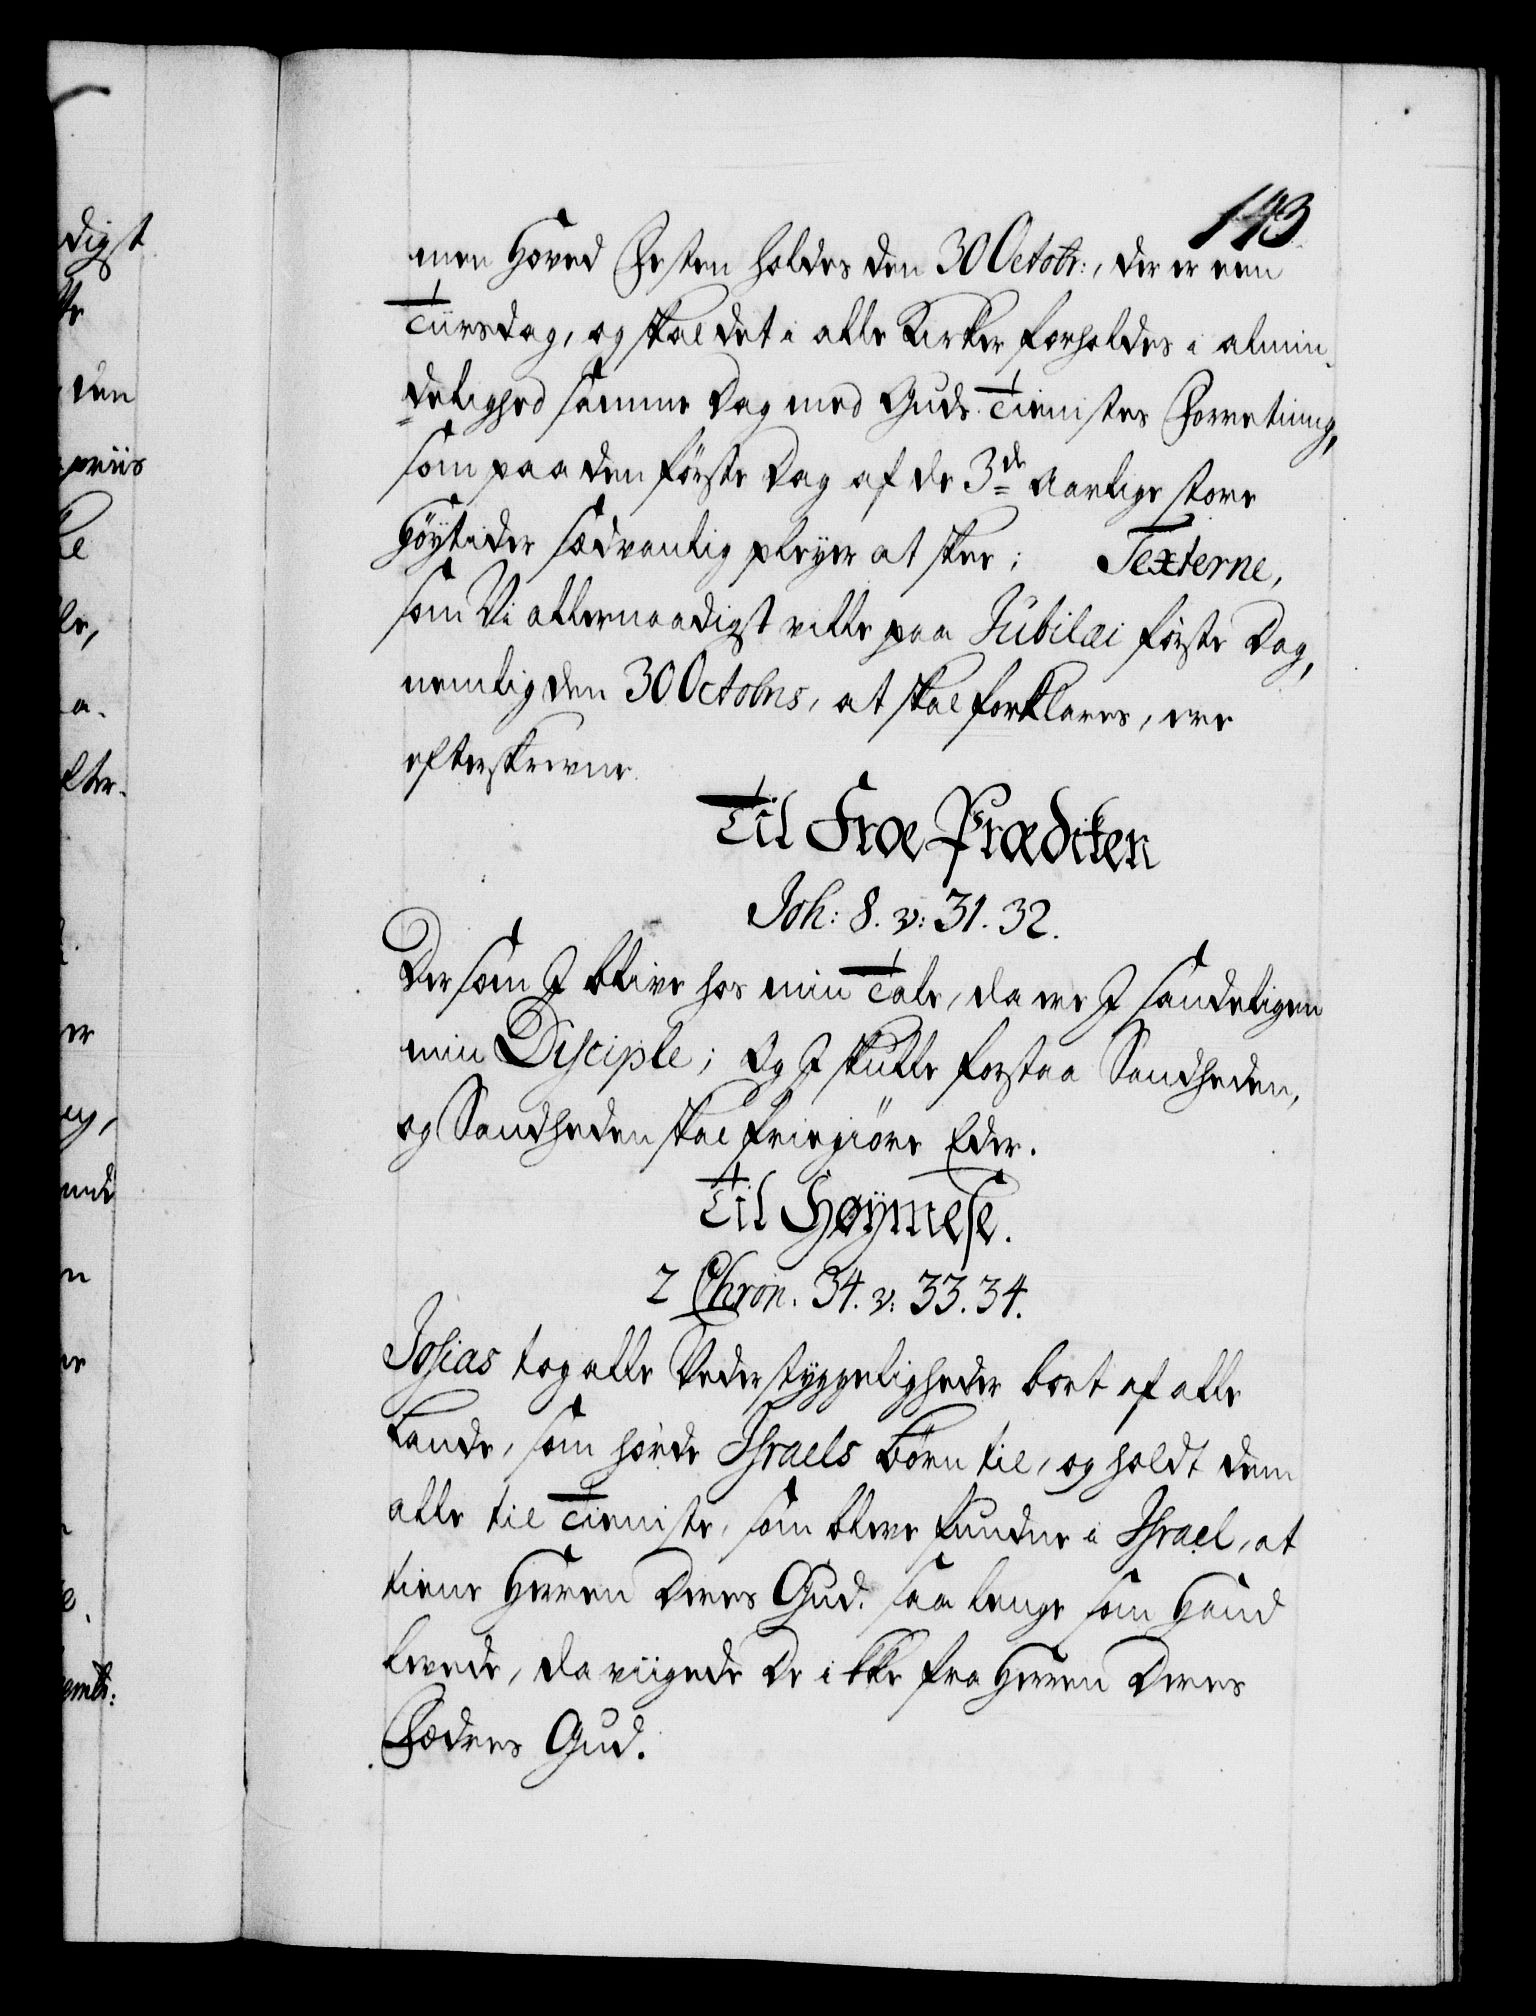 143
men Hoved Festen holdes den 30 Octobr:, der er een
Tiirsdag, og skal det i alle Kirker forholdes i almin-
delighed samme Dag med Guds Tienistes Forretning,
som paa den første Dag af de 3de Aarlige store
Höÿtider sædvanlig pleÿer at skee; Texterne,
som Vi allernaadigst ville paa Jubilæi første Dag,
nemlig den 30 Octobris, at skal forklares, ere
efterskrevne.
Til Froe Prædiken
Joh: 8. v: 31. 32.
Dersom I blive hos min Tale, da ere I sandeligen
min Disciple; Og I skulle forstaa Sandheden,
og Sandheden skal friegiöre Eder.
Til Høÿmese.
2 Chron. 34. v: 33. 34.
Josias tog alle Vederstyggeligheder bort af alle
Lande, som hørde Israels Børn til, og holdt dem
alle til Tieniste, som bleve fundne i Israel, at
tiene Herren Deres Gud. saa lenge som Hand
levede, da viigede De ikke fra Herren Deres
Fædres Gud.
digst
den
priis
le,
a.
er
ng,
embr: